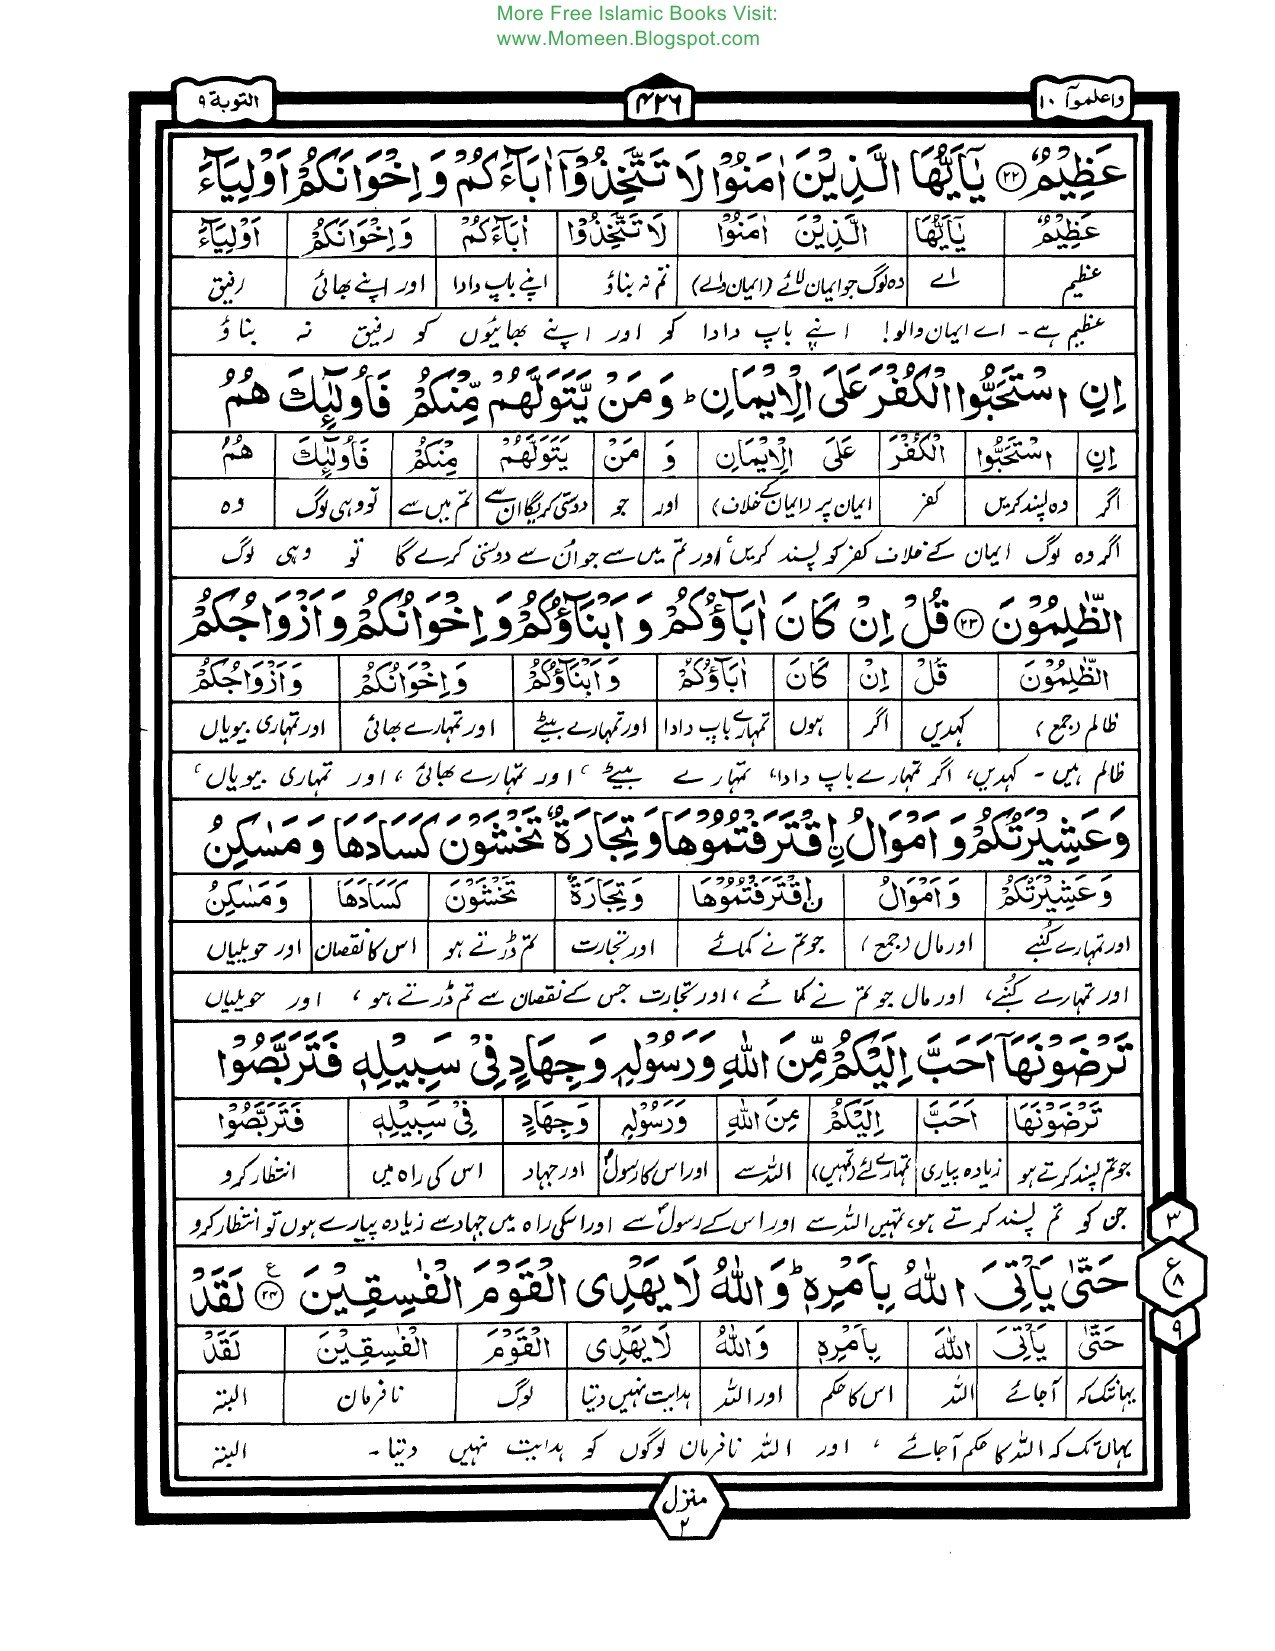 More Free Islamic Books Visit:
www.Momeen.Blogspot.com
واعلموآ ۱۰
۴۲۶
التوبة ۹
عَظِيْمٌ ﴿۲۲﴾ يٰۤاَيُّهَا الَّذِيْنَ اٰمَنُوْا لَا تَتَّخِذُوْۤا اٰبَآءَكُمْ وَ اِخْوَانَكُمْ اَوْلِيَآءَ
عَظِيْمٌ يٰۤاَيُّهَا الَّذِيْنَ اٰمَنُوْا لَا تَتَّخِذُوْا اٰبَآءَكُمْ وَاِخْوَانَكُمْ اَوْلِيَآءَ
عظیم اے وہ لوگ جو ایمان لائے (ایمان والے) تم نہ بناؤ اپنے باپ دادا اور اپنے بھائی رفیق
عظیم ہے۔ اے ایمان والو! اپنے باپ دادا کو اور اپنے بھائیوں کو رفیق نہ بناؤ
اِنِ اسْتَحَبُّوا الْكُفْرَ عَلَى الْاِيْمَانِ ؕ وَ مَنْ يَّتَوَلَّهُمْ مِّنْكُمْ فَاُولٰٓئِكَ هُمُ
اِنِ اسْتَحَبُّوا الْكُفْرَ عَلَى الْاِيْمَانِ وَ مَنْ يَتَوَلَّهُمْ مِنْكُمْ فَاُولٰٓئِكَ هُمُ
اگر وہ پسند کریں کفر ایمان پر (ایمان کے خلاف) اور جو دوستی کریگا ان سے تم میں سے تو وہی لوگ وہ
اگر وہ لوگ ایمان کے خلاف کفر کو پسند کریں، اور تم میں سے جو اُن سے دوستی کرے گا تو وہی لوگ
الظّٰلِمُوْنَ ﴿۲۳﴾ قُلْ اِنْ كَانَ اٰبَآؤُكُمْ وَ اَبْنَآؤُكُمْ وَ اِخْوَانُكُمْ وَ اَزْوَاجُكُمْ
الظّٰلِمُوْنَ قُلْ اِنْ كَانَ اٰبَآؤُكُمْ وَ اَبْنَآؤُكُمْ وَاِخْوَانُكُمْ وَاَزْوَاجُكُمْ
ظالم (جمع) کہدیں اگر ہوں تمہارے باپ دادا اور تمہارے بیٹے اور تمہارے بھائی اور تمہاری بیویاں
ظالم ہیں۔ کہدیں، اگر تمہارے باپ دادا، تمہارے بیٹے، اور تمہارے بھائی، اور تمہاری بیویاں،
وَعَشِيْرَتُكُمْ وَ اَمْوَالُ اِۨقْتَرَفْتُمُوْهَا وَ تِجَارَةٌ تَخْشَوْنَ كَسَادَهَا وَ مَسٰكِنُ
وَعَشِيْرَتُكُمْ وَ اَمْوَالُ اِۨقْتَرَفْتُمُوْهَا وَ تِجَارَةٌ تَخْشَوْنَ كَسَادَهَا وَ مَسٰكِنُ
اور تمہارے کنبے اور مال (جمع) جو تم نے کمائے اور تجارت تم ڈرتے ہو اس کا نقصان اور حویلیاں
اور تمہارے کنبے، اور مال جو تم نے کمائے، اور تجارت جس کے نقصان سے تم ڈرتے ہو، اور حویلیاں
تَرْضَوْنَهَاۤ اَحَبَّ اِلَيْكُمْ مِّنَ اللّٰهِ وَ رَسُوْلِهٖ وَ جِهَادٍ فِيْ سَبِيْلِهٖ فَتَرَبَّصُوْا
تَرْضَوْنَهَا اَحَبَّ اِلَيْكُمْ مِنَ اللّٰهِ وَرَسُوْلِهٖ وَجِهَادٍ فِيْ سَبِيْلِهٖ فَتَرَبَّصُوْا
جو تم پسند کرتے ہو زیادہ پیاری تمہارے لئے (تمہیں) اللہ سے اور اس کا رسولؐ اور جہاد اس کی راہ میں انتظار کرو
جن کو تم پسند کرتے ہو، تمہیں اللہ سے اور اس کے رسولؐ سے اور اسکی راہ میں جہاد سے زیادہ پیارے ہوں تو انتظار کرو
۳
حَتّٰى يَاْتِيَ اللّٰهُ بِاَمْرِهٖ ؕ وَاللّٰهُ لَا يَهْدِى الْقَوْمَ الْفٰسِقِيْنَ ﴿۲۴﴾ ع لَقَدْ
ع ۸
۹
حَتّٰى يَاْتِيَ اللّٰهُ بِاَمْرِهٖ وَاللّٰهُ لَا يَهْدِى الْقَوْمَ الْفٰسِقِيْنَ لَقَدْ
یہانتک کہ آجائے اللہ اس کا حکم اور اللہ ہدایت نہیں دیتا لوگ نافرمان البتہ
یہاں تک کہ اللہ کا حکم آجائے، اور اللہ نافرمان لوگوں کو ہدایت نہیں دیتا۔ البتہ
منزل ۲